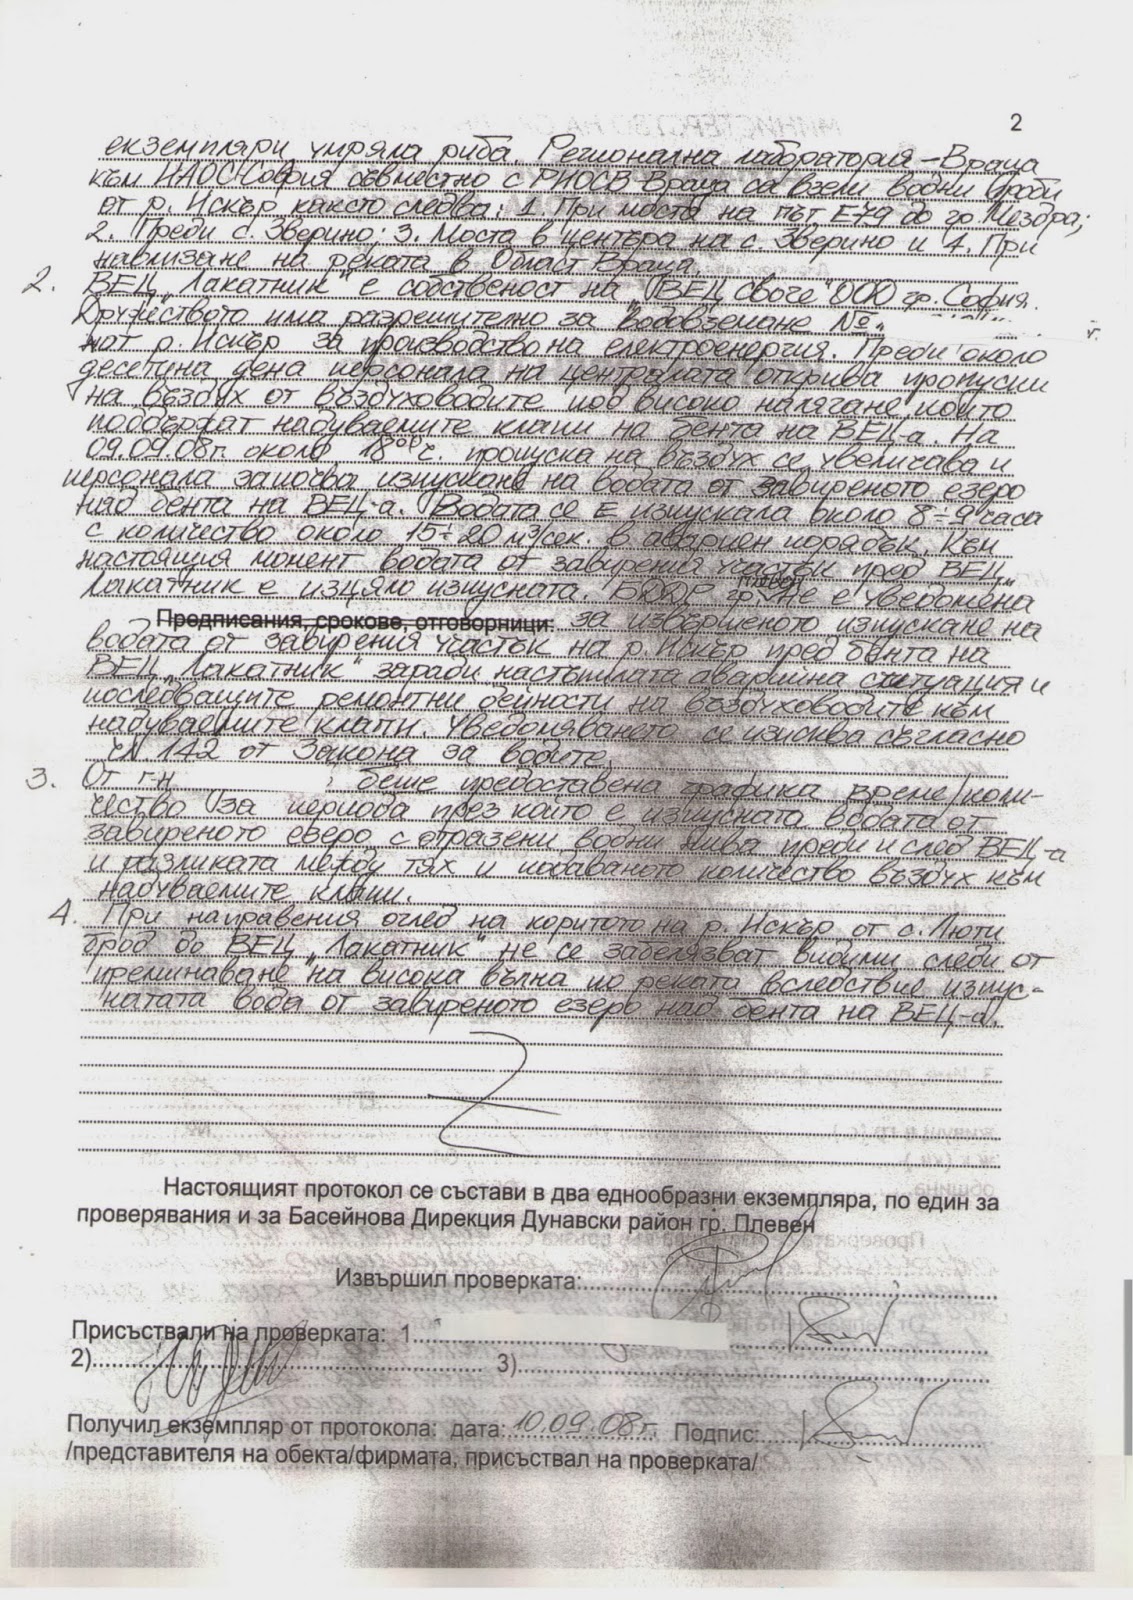 2
екземпляри умряла риба. Регионална лаборатория – Враца
към ИАОС-София съвместно с РИОСВ-Враца са взели водни проби
от р. Искър както следва: 1. При моста на път Е79 до гр. Мездра;
2. Преди с. Зверино; 3. Моста в центъра на с. Зверино и 4. При
навлизане на реката в Област Враца.
2. ВЕЦ „Лакатник" е собственост на „ВЕЦ Своге" ООД гр. София.
Дружеството има разрешително за водовземане №
от р. Искър за производство на електроенергия. Преди около
десетина дена персонала на централата открива пропуски
на въздух от въздуховодите под високо налягане които
поддържат надуваемите клапи на бента на ВЕЦ-а. На
09.09.08г. около 18⁰⁰ч. пропуска на въздух се увеличава и
персонала започва изпускане на водата от завиреното езеро
над бента на ВЕЦ-а. Водата се е изпускала около 8÷9 часа
с количество около 15÷20 м³/сек. в авариен порядък. Към
настоящия момент водата от завирения участък пред ВЕЦ „
Лакатник е изцяло изпусната. БДДР гр. Плевен не е уведомена
Предписания, срокове, отговорници: за извършеното изпускане на
водата от завирения участък на р. Искър пред бента на
ВЕЦ „Лакатник" заради настъпилата аварийна ситуация и
последващите ремонтни дейности на въздуховодите към
надуваемите клапи. Уведомяването се изисква съгласно
чл. 142 от Закона за водите.
3. От г-н беше предоставена графика време/коли-
чество за периода през който е изпусната водата от
завиреното езеро с отразени водни нива преди и след ВЕЦ-а
и разликата между тях и подаваното количество въздух към
надуваемите клапи.
4. При направения оглед на коритото на р. Искър от с. Люти
брод до ВЕЦ „Лакатник" не се забелязват видими следи от
преминаване на висока вълна по реката вследствие изпус-
натата вода от завиреното езеро над бента на ВЕЦ-а.
Настоящият протокол се състави в два еднообразни екземпляра, по един за
проверявания и за Басейнова Дирекция Дунавски район гр. Плевен
Извършил проверката:
Присъствали на проверката: 1
2) 3)
Получил екземпляр от протокола: дата: 10.09.08г. Подпис:
/представителя на обекта/фирмата, присъствал на проверката/